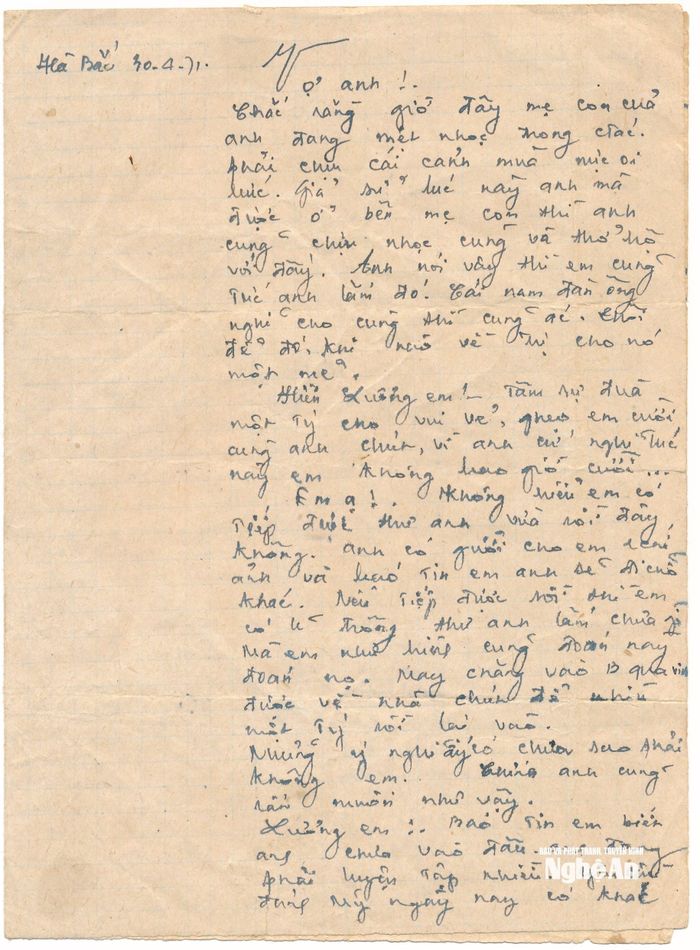 Hà Bắc 30-4-71.
Vợ anh !.
Chắc rằng giờ đây mẹ con của
anh đang mệt nhọc trong
phải chịu cái cảnh mùa nực oi
bức. Giả sử lúc này anh mà
được ở bên mẹ con thì anh
cũng chịu nhọc cùng và thở hộ
với đấy. Anh nói vậy thì em cũng
tức anh lắm đó. Cái nam đàn ông
nghĩ cho cùng thì cũng ác. Thôi
để đó, khi nào về trị cho nó
một mẻ.
Hiền Lương em! - Tâm sự đùa
một tý cho vui vẻ, ghẹo em cười
cùng anh chút, vì anh cứ nghĩ lúc
này em không bao giờ cười...
Em ạ !. Không hiểu em có
tiếp được thư anh vừa rồi đây
không. anh có gửi cho em
ảnh và báo tin em anh sẽ đi chỗ
khác. Nếu tiếp được rồi thì em
có lẽ trông thư anh lắm chưa
Mà em như hiêng cũng đoán này
đoán nọ. May chăng vào B qua
được về nhà chút để nhìn
một tý rồi lại vào.
Những ý nghĩ ấy có chưa sao phải
không em. Chính anh cũng
rất muốn như vậy.
Lương em !. Báo tin em biết
anh chưa vào đâu.
phải luyện tập nhiều.
đánh Mỹ ngày nay có khác
BÁO VÀ PHÁT THANH, TRUYỀN HÌNH
Nghệ An